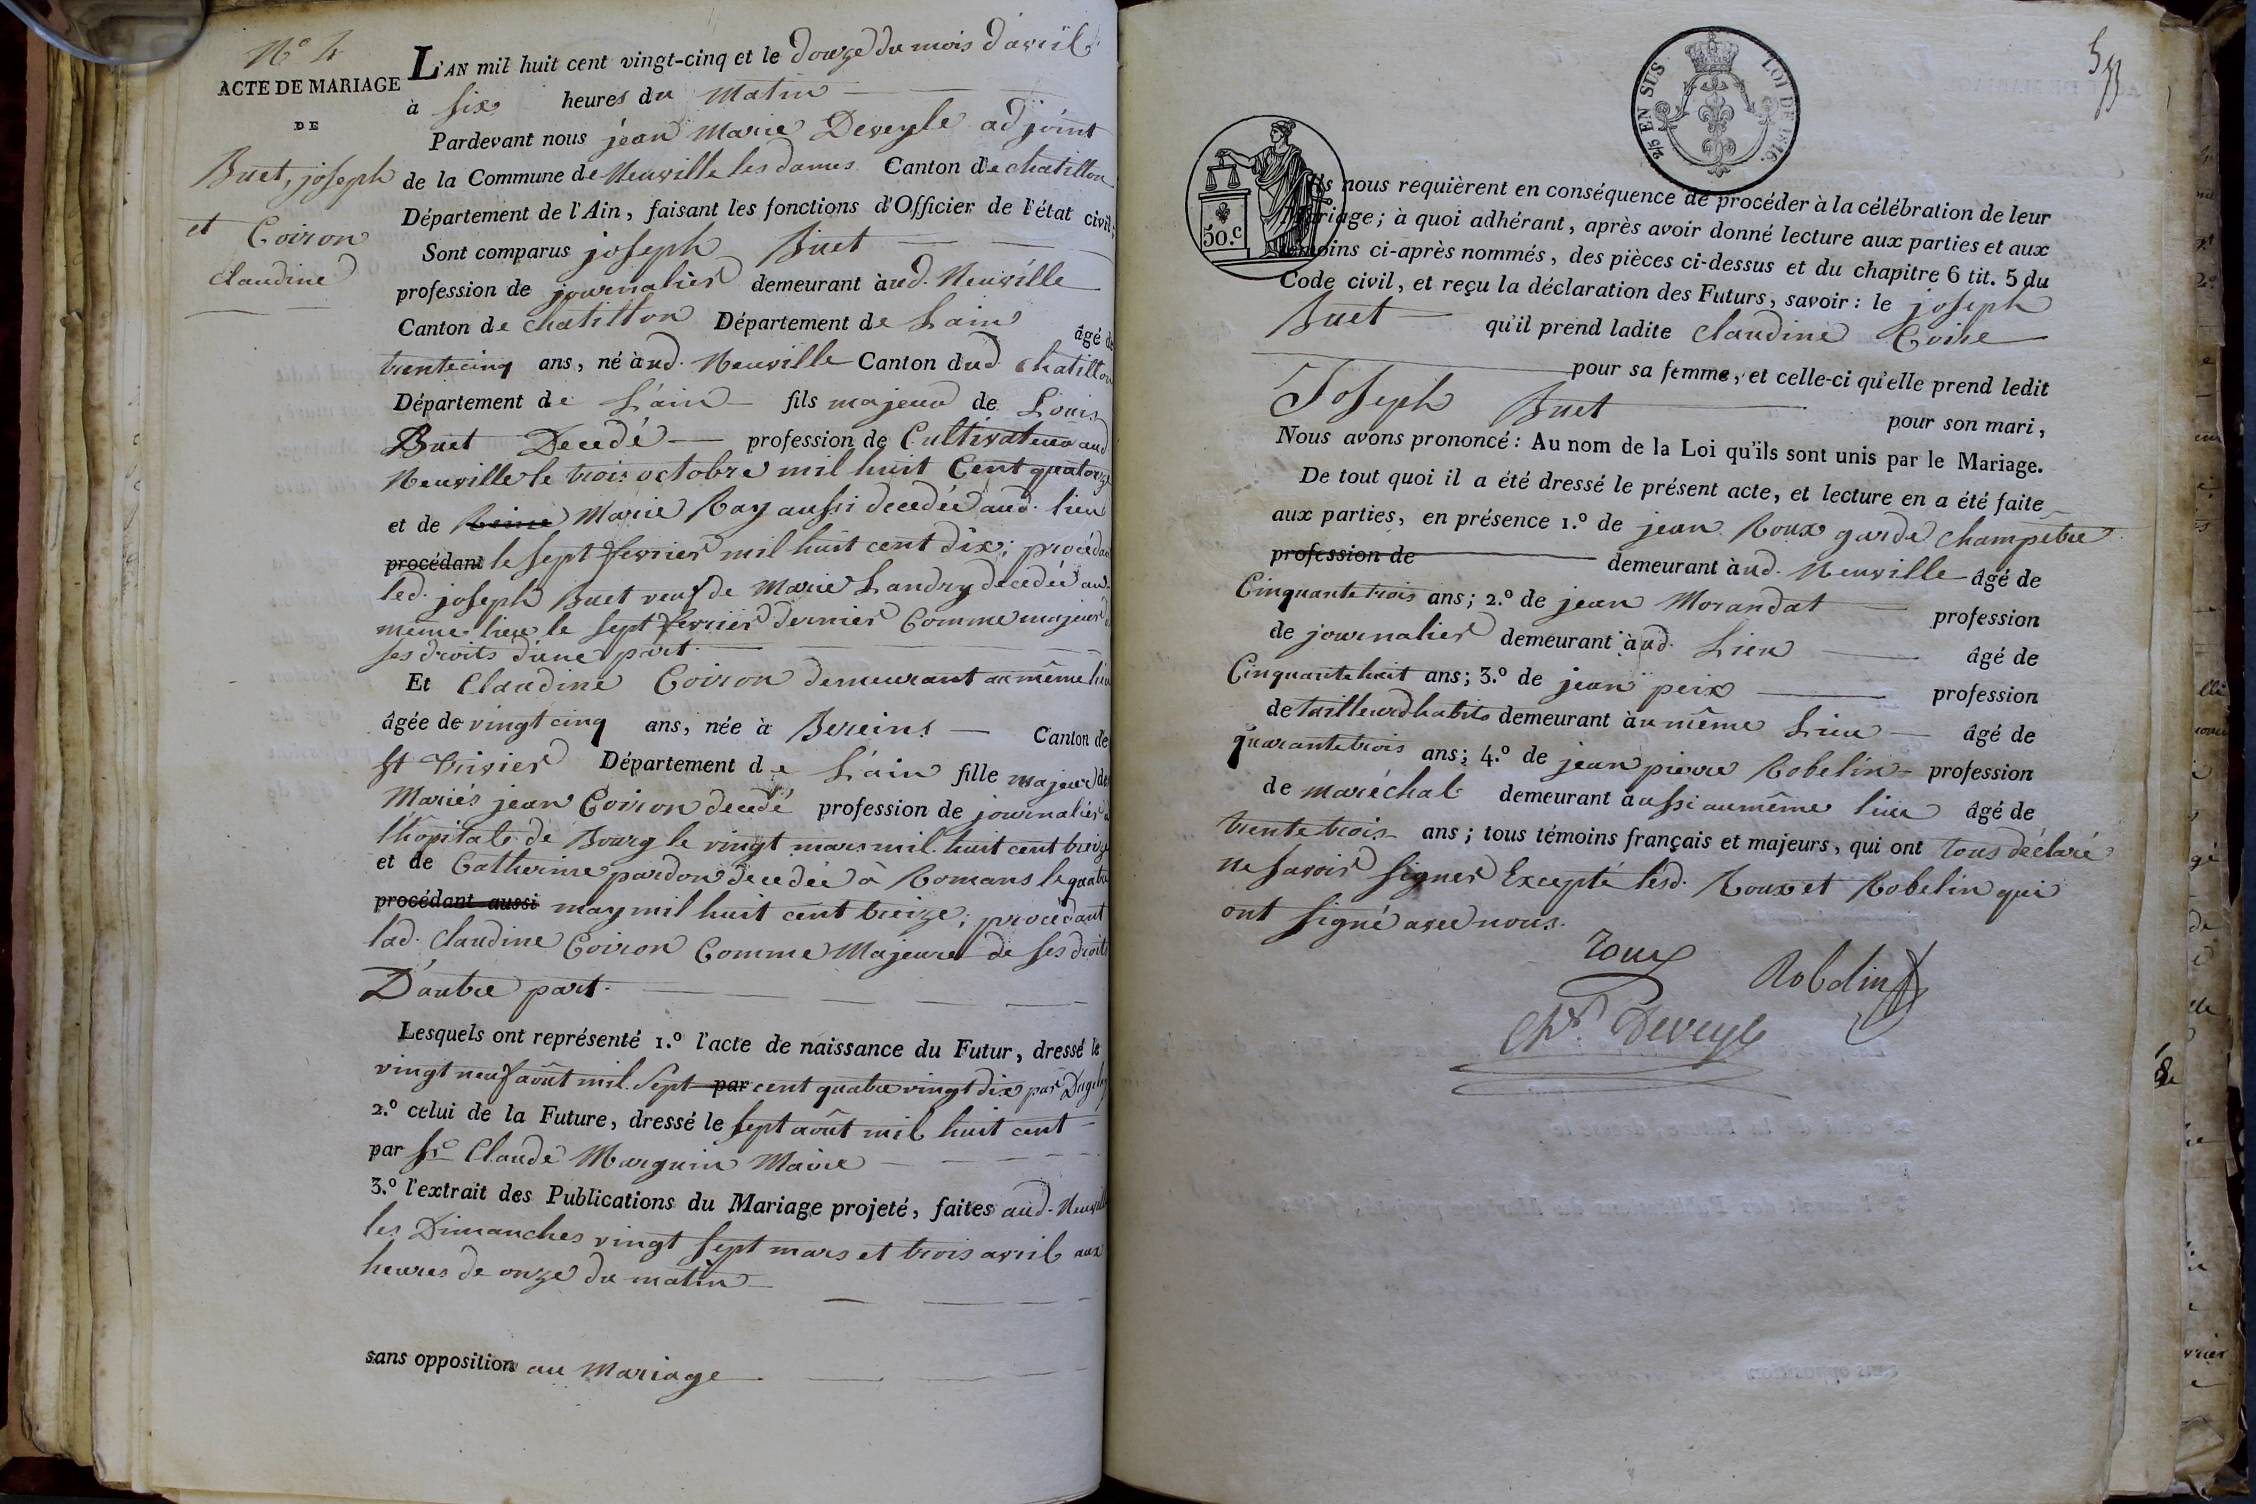 N.° 4
ACTE DE MARIAGE
DE
Buet, joseph
et Coiron
claudine
L'AN mil huit cent vingt-cinq et le douze du mois d'avril
à six heures du matin
Pardevant nous jean Marie Deveyle adjoint
de la Commune de Neuville les dames Canton de chatillon
Département de l'Ain, faisant les fonctions d'Officier de l'état civil,
Sont comparus joseph Buet
profession de journalier demeurant àud. Neuville
Canton de chatillon Département de Lain âgé de
trentecinq ans, né àud. Neuville Canton dud chatillon
Département de L'ain fils majeur de Louis
Buet Decedé profession de Cultivateur aud.
Neuville le trois octobre mil huit Cent quatorze
et de Marie Ray aussi decedée aud. lieu
procédant le sept fevrier mil huit cent dix; procédant
led. joseph Buet veuf de Marie Landry decedée au
même lieu le sept fevrier dernier Comme majeur d
ses droits d'une part.
Et Claudine Coiron demeurant au même lieu
âgée de vingt cinq ans, née à Bereins Canton de
St Trivier Département de L'ain fille majeure des
Mariés jean Coiron decedé profession de journalier à
l'hôpital de Bourg le vingt mars mil huit cent treize
et de Catherine pardon decedée à Romans le quatre
procédant aussi may mil huit cent treize; procédant
lad. Claudine Coiron Comme Majeure de ses droits
D'autre part.
Lesquels ont représenté 1.° l'acte de naissance du Futur, dressé le
vingt neuf août mil Sept par cent quatre vingt dix par
2.° celui de la Future, dressé le sept août mil huit cent
par Sr Claude Marguin Maire
3.° l'extrait des Publications du Mariage projeté, faites aud. Neuville
les Dimanches vingt sept mars et trois avril aux
heures de onze du matin
sans opposition au Mariage
2/5 EN SUS LOI DE 1816.
50.c
Ils nous requièrent en conséquence de procéder à la célébration de leur
Mariage; à quoi adhérant, après avoir donné lecture aux parties et aux
témoins ci-après nommés, des pièces ci-dessus et du chapitre 6 tit. 5 du
Code civil, et reçu la déclaration des Futurs, savoir: le joseph
Buet qu'il prend ladite Claudine
pour sa femme, et celle-ci qu'elle prend ledit
Joseph Buet pour son mari,
Nous avons prononcé: Au nom de la Loi qu'ils sont unis par le Mariage.
De tout quoi il a été dressé le présent acte, et lecture en a été faite
aux parties, en présence 1.° de jean Roux garde champêtre
profession de demeurant àud. Neuville âgé de
Cinquante trois ans; 2.° de jean Morandat profession
de journalier demeurant àud. Lieu âgé de
Cinquante huit ans; 3.° de jean peix profession
de tailleur d'habits demeurant àu même Lieu âgé de
quarante trois ans; 4.° de jean pierre Robelin profession
de maréchal demeurant aussi au même lieu âgé de
trente trois ans; tous témoins français et majeurs, qui ont tous déclaré
ne savoir signer Excepté lesd. Roux et Robelin qui
ont signé avec nous.
roux
Robelin
Deveyle